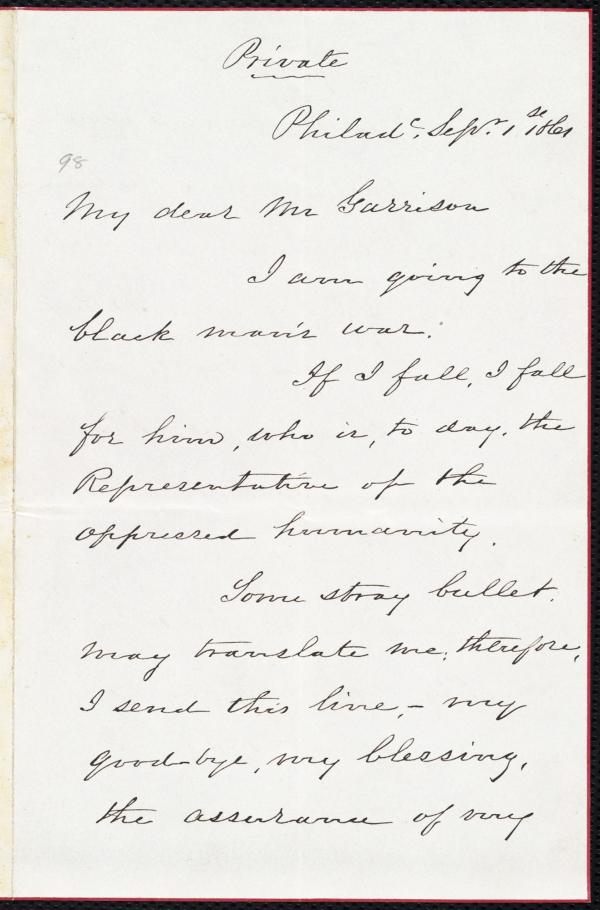 Private
Philadᶜ. Sepr. 1st 1861
98
My dear Mr Garrison
I am going to the
black man's war.
If I fall, I fall
for him, who is, to day, the
Representative of the
oppressed humanity.
Some stray bullet.
may translate me; therefore,
I send this line, - my
good-bye, my blessing,
the assurance of my